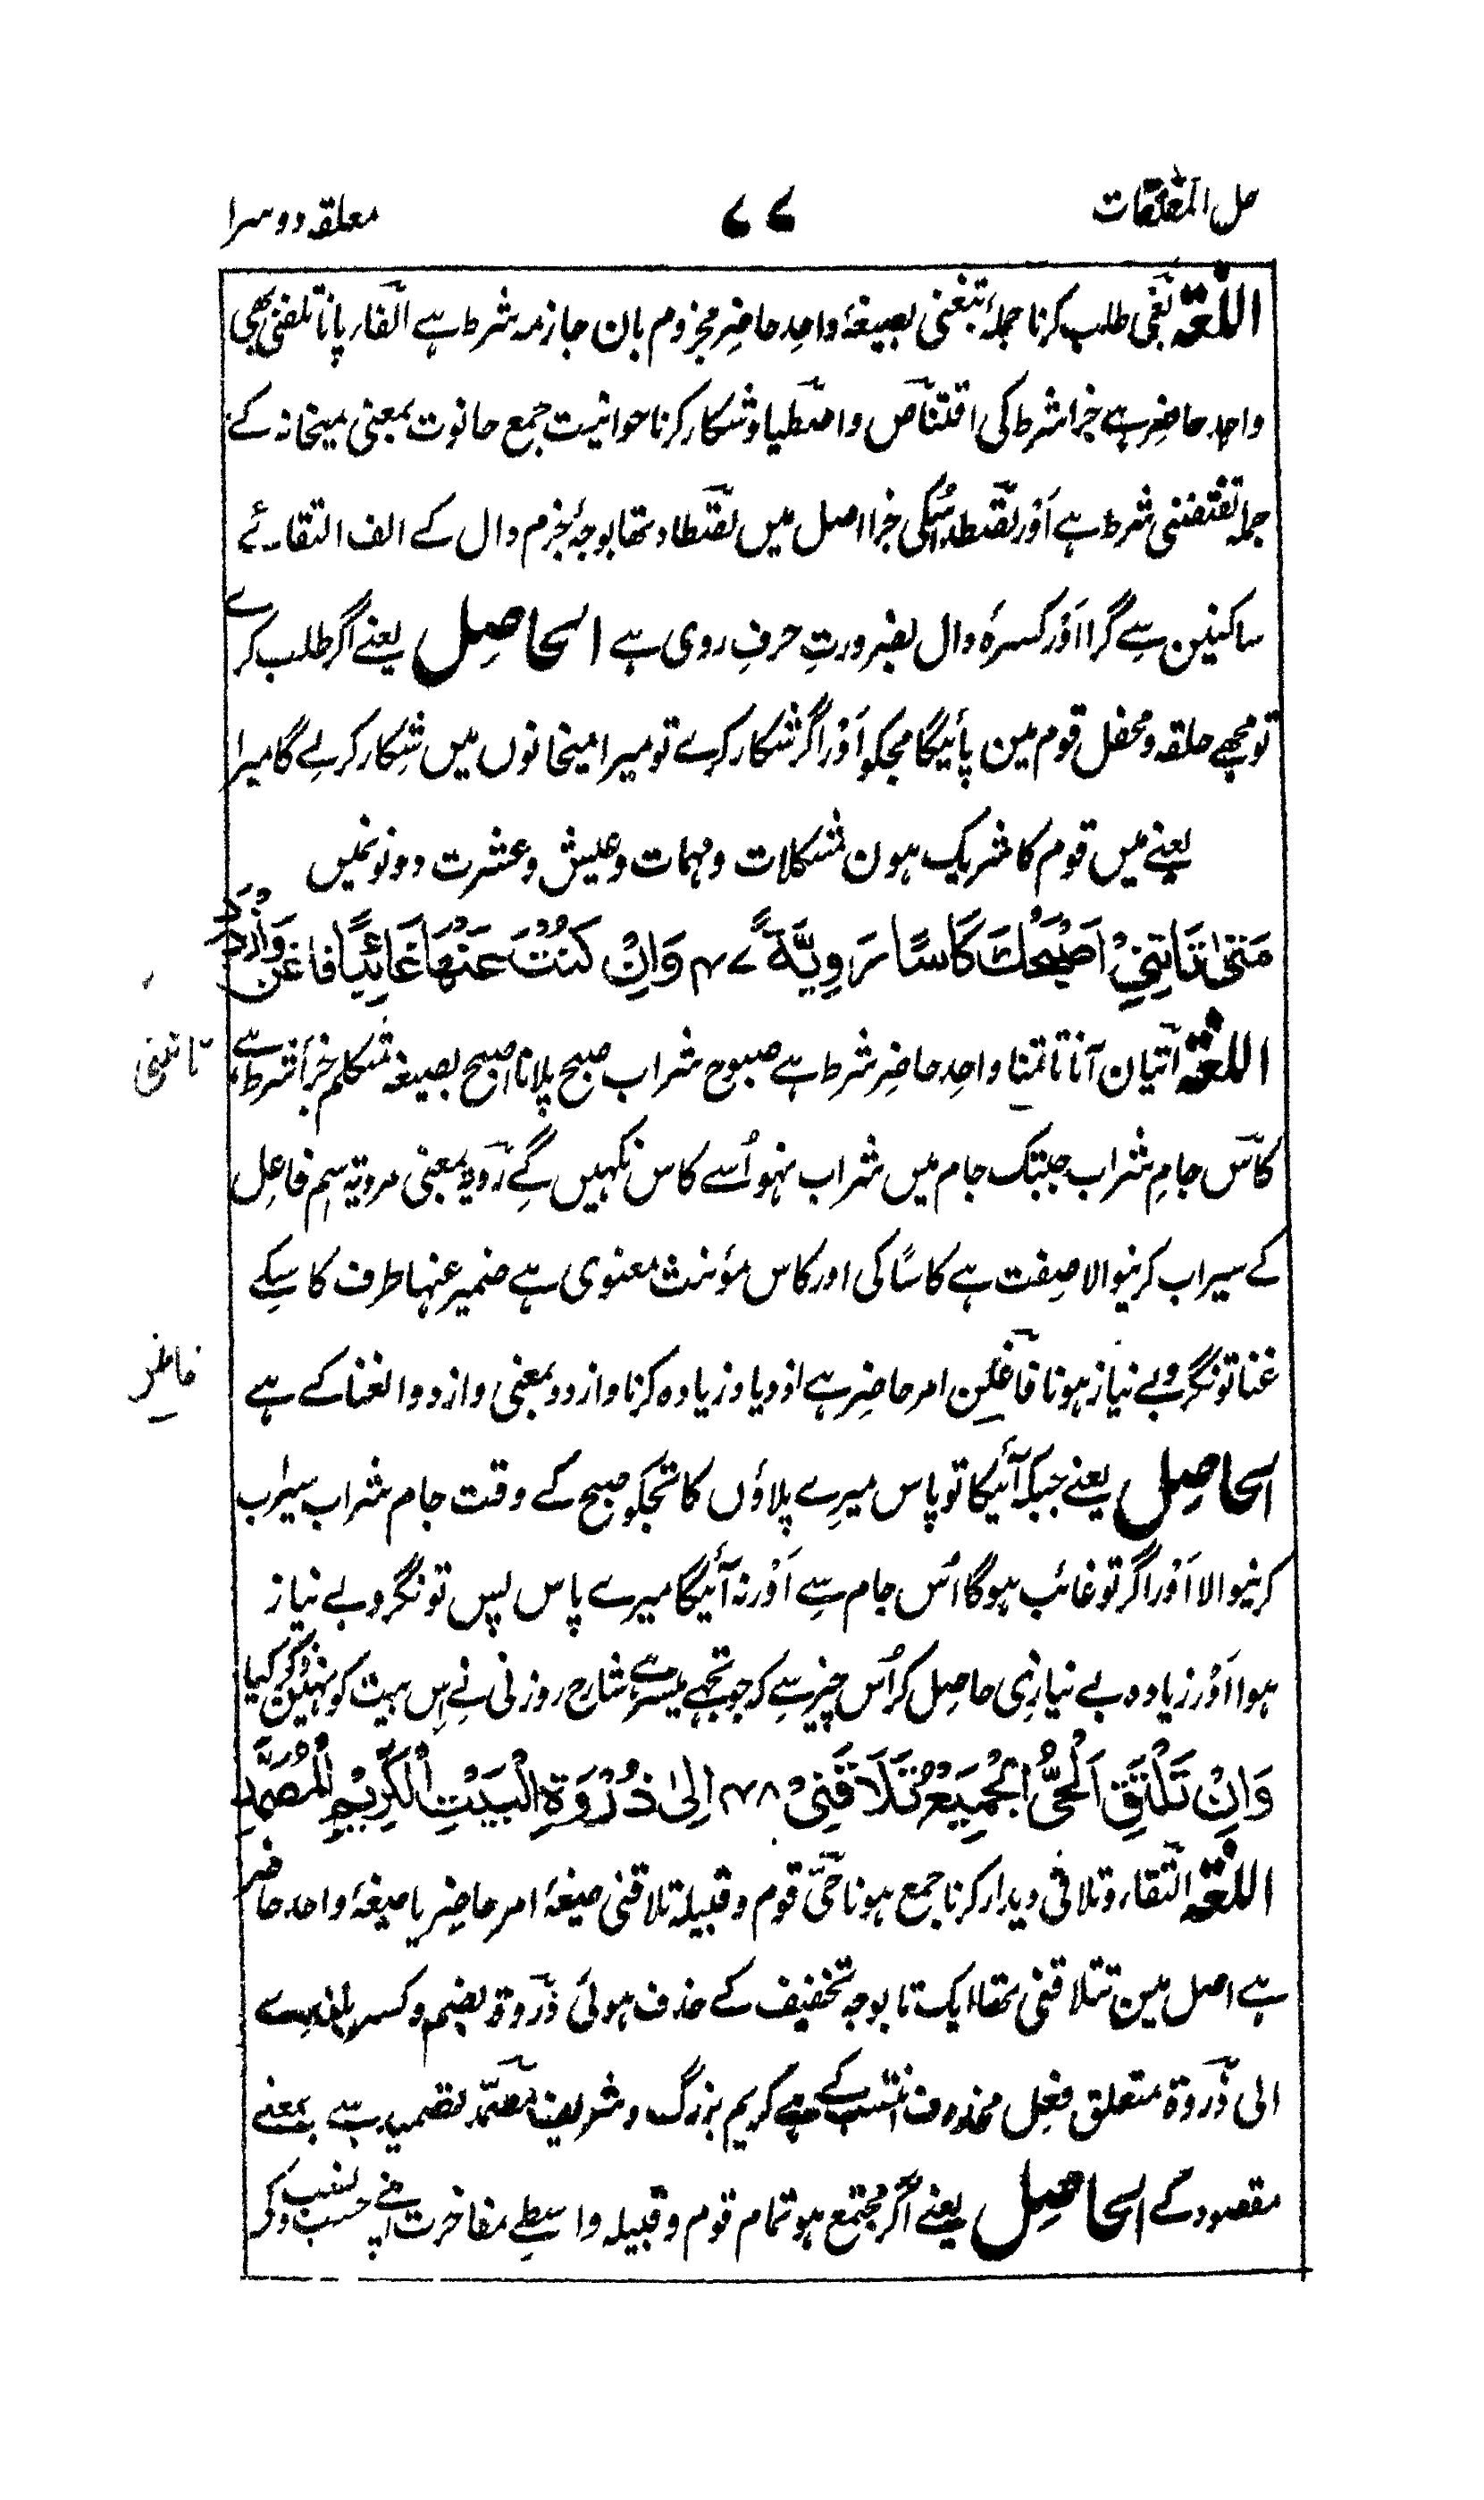 حل المغلقات ۷۷ معلقہ دوسرا
اللغۃ بغی طلب کرنا جملہ تبغنی بصیغۂ واحد حاضر مجزوم بان جازمہ شرط ہے الفار پانا تلفنی بھی
واحد حاضر ہے جزا شرط کی اقتناص واصطیاد شکار کرنا حوانیت جمع حانوت بمعنی میخانہ کے
جملہ تقتنصنی شرط ہے اَوْر تَقْتَطد اُسکی جزا اصل میں تقتطاد تھا بوجۂ جزم دال کے الف التقائے
ساکنین سے گرا اَوْر کسرۂ دال بضرورتِ حرفِ روی ہے الحاصل یعنے اگر طلب کرے
تو مجھے حلقہ و محفل قوم مین پائیگا مجکو اَوْر اگر شکار کرے تو میرا میخانوں میں شکار کرلے گا میرا
یعنے میں قوم کا شریک ہون مشکلات و مہمات و عیش و عشرت دونونمیں
مَتٰی تَاتِنِیْ اَصْبَحْكَ كَاسًا رَوِیَّۃً ۴۷ وَاِنْ كُنْتَ عَنْهَا غَائِبًا فَاغْنَ وَازْدَدِ
اللغۃ اتیان آنا تاتنا واحد حاضر شرط ہے صبوح شراب صبح پلانا اصبح بصیغہ متکلم جزا شرط ہے
تاتنی
کاس جامِ شراب جبتک جام میں شراب نہو اُسے کاس نکہیں گے رَوِیہ بمعنی مرویۃ اسم فاعل
کے سیراب کرنیوالا صفت ہے کاسًا کی اور کاس مؤنث معنوی ہے ضمیر عنہا طرف کاسکے
غنا تونگر و بے نیاز ہونا فاغن امر حاضر ہے ازدیاد زیادہ کرنا وازدد بمعنی وازدد الغنا کے ہے
الحاصل یعنے جبکہ آئیگا تو پاس میرے پلاؤں گا تجکو صبح کے وقت جام شراب سیراب
کرنیوالا اَوْر اگر تو غائب ہوگا اُس جام سے اَوْر نہ آئیگا میرے پاس پس تونگر و بے نیاز
ہو اَوْر زیادہ بے نیازی حاصل کر اُس چیز سے کہ جو تجھے میسر ہے شارح زوزنی نے اِس بیت کو نہیں ذکر کیا
وَاِنْ تَلْتَقِ الْحَیُّ الْجَمِیْعُ تُلَاقِنِیْ ۴۸ اِلٰی ذُرْوَۃِ الْبَیْتِ الْكَرِیْمِ الْمُصَمَّدِ
اللغۃ التقا، وتلاقی دیدار کرنا جمع ہونا حَیّ قوم و قبیلہ تلاقنی صیغۂ امر حاضر یا صیغۂ واحد حاضر
ہے اصل مین تتلاقنی تھا ایک تا بوجہ تخفیف کے حذف ہوئی ذروۃ بضم و کسر بلندی
الی ذروۃ متعلق فعل محذوف انتسب کے ہے کریم بزرگ و شریف مُصَمَّد تصمید سے بمعنے
مقصود کے الحاصل یعنے اگر مجتمع ہو تمام قوم و قبیلہ واسطے مفاخرت اپنے حسب و نسب کی